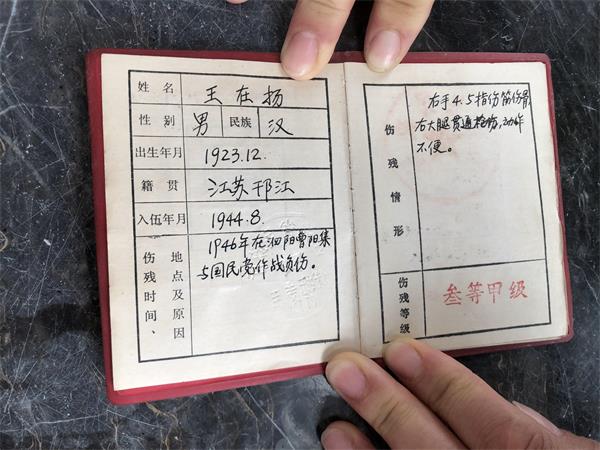 姓名 王在扬
性别 男 民族 汉
出生年月 1923.12.
籍贯 江苏邗江
入伍年月 1944.8.
伤残时间、地点及原因
1946年在泗阳曹阳集
与国民党作战负伤。
伤残情形
右手4.5指伤筋伤骨,
右大腿贯通枪伤,动作
不便。
伤残等级 叁等甲级